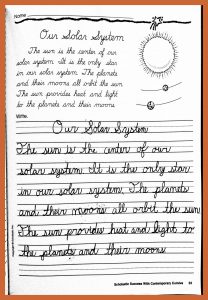 Name
Our Solar System
The sun is the center of our
solar system. It is the only star
in our solar system. The planets
and their moons all orbit the sun.
The sun provides heat and light
to the planets and their moons.
Write.
Our Solar System
The sun is the center of our
solar system. It is the only star
in our solar system. The planets
and their moons all orbit the sun.
The sun provides heat and light to
the planets and their moons.
Scholastic Success With Contemporary Cursive